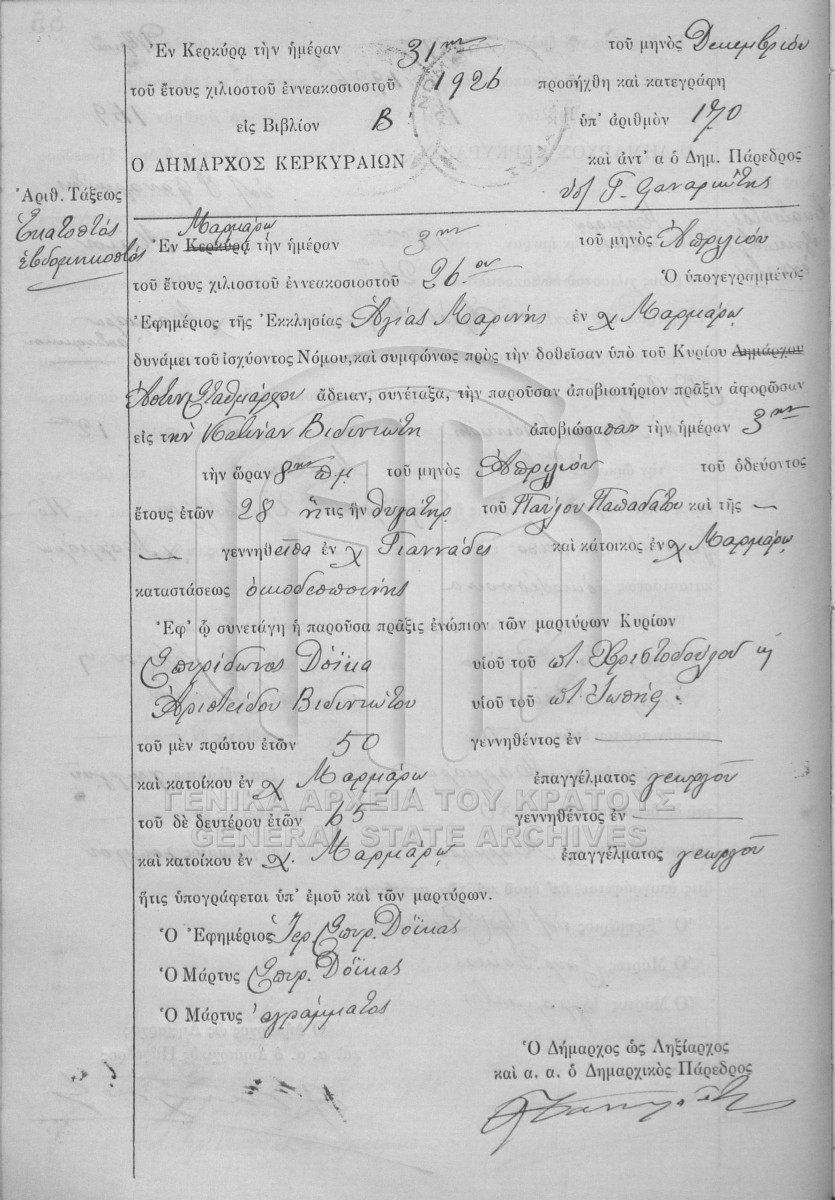 Ἐν Κερκύρᾳ τὴν ἡμέραν 31ην τοῦ μηνὸς Δεκεμβρίου
τοῦ ἔτους χιλιοστοῦ ἐννεακοσιοστοῦ 1926 προσήχθη καὶ κατεγράφη
εἰς Βιβλίον Β' ὑπ' ἀριθμὸν 170
Ο ΔΗΜΑΡΧΟΣ ΚΕΡΚΥΡΑΙΩΝ καὶ ἀντ' α ὁ Δημ. Πάρεδρος
Γ. Φαναριώτης
Ἀριθ. Τάξεως
Ἑκατοστὸς
ἑβδομηκοστὸς
Μαρμάρῳ
Ἐν Κερκύρᾳ τὴν ἡμέραν 3ην τοῦ μηνὸς Ἀπριλίου
τοῦ ἔτους χιλιοστοῦ ἐννεακοσιοστοῦ 26ου Ὁ ὑπογεγραμμένος
Ἐφημέριος τῆς Ἐκκλησίας Ἁγίας Μαρίνης ἐν χ Μαρμάρῳ
δυνάμει τοῦ ἰσχύοντος Νόμου, καὶ συμφώνως πρὸς τὴν δοθεῖσαν ὑπὸ τοῦ Κυρίου Δημάρχου
Ἀστυν. Σταθμάρχου ἄδειαν, συνέταξα, τὴν παροῦσαν ἀποβιωτήριον πρᾶξιν ἀφορῶσαν
εἰς τὴν Κατίναν Βιδυνιώτη ἀποβιώσασαν τὴν ἡμέραν 3ην
τὴν ὥραν 8ην πμ τοῦ μηνὸς Ἀπριλίου τοῦ ὁδεύοντος
ἔτους ἐτῶν 28 ἥτις ἦν θυγάτηρ τοῦ Παύλου Παπαδάτου καὶ τῆς —
— γεννηθεῖσα ἐν χ Γιαννάδες καὶ κάτοικος ἐν χ Μαρμάρῳ
καταστάσεως οἰκοδεσποίνης
Ἐφ' ᾧ συνετάγη ἡ παροῦσα πρᾶξις ἐνώπιον τῶν μαρτύρων Κυρίων
Σπυρίδωνος Δόϊκα υἱοῦ τοῦ ποτ. Χριστοδούλου κ
Ἀριστείδου Βιδυνιώτου υἱοῦ τοῦ ποτ. Ἰωσὴφ.
τοῦ μὲν πρώτου ἐτῶν 50 γεννηθέντος ἐν —
καὶ κατοίκου ἐν χ Μαρμάρῳ ἐπαγγέλματος γεωργοῦ
ΓΕΝΙΚΑ ΑΡΧΕΙΑ ΤΟΥ ΚΡΑΤΟΥΣ
τοῦ δὲ δευτέρου ἐτῶν 65 γεννηθέντος ἐν —
GENERAL STATE ARCHIVES
καὶ κατοίκου ἐν χ. Μαρμάρῳ ἐπαγγέλματος γεωργοῦ
ἥτις ὑπογράφεται ὑπ' ἐμοῦ καὶ τῶν μαρτύρων.
Ὁ Ἐφημέριος Ἱερ Σπυρ. Δόϊκας
Ὁ Μάρτυς Σπυρ. Δόϊκας
Ὁ Μάρτυς ἀγράμματος
Ὁ Δήμαρχος ὡς Ληξίαρχος
καὶ α. α. ὁ Δημαρχικὸς Πάρεδρος